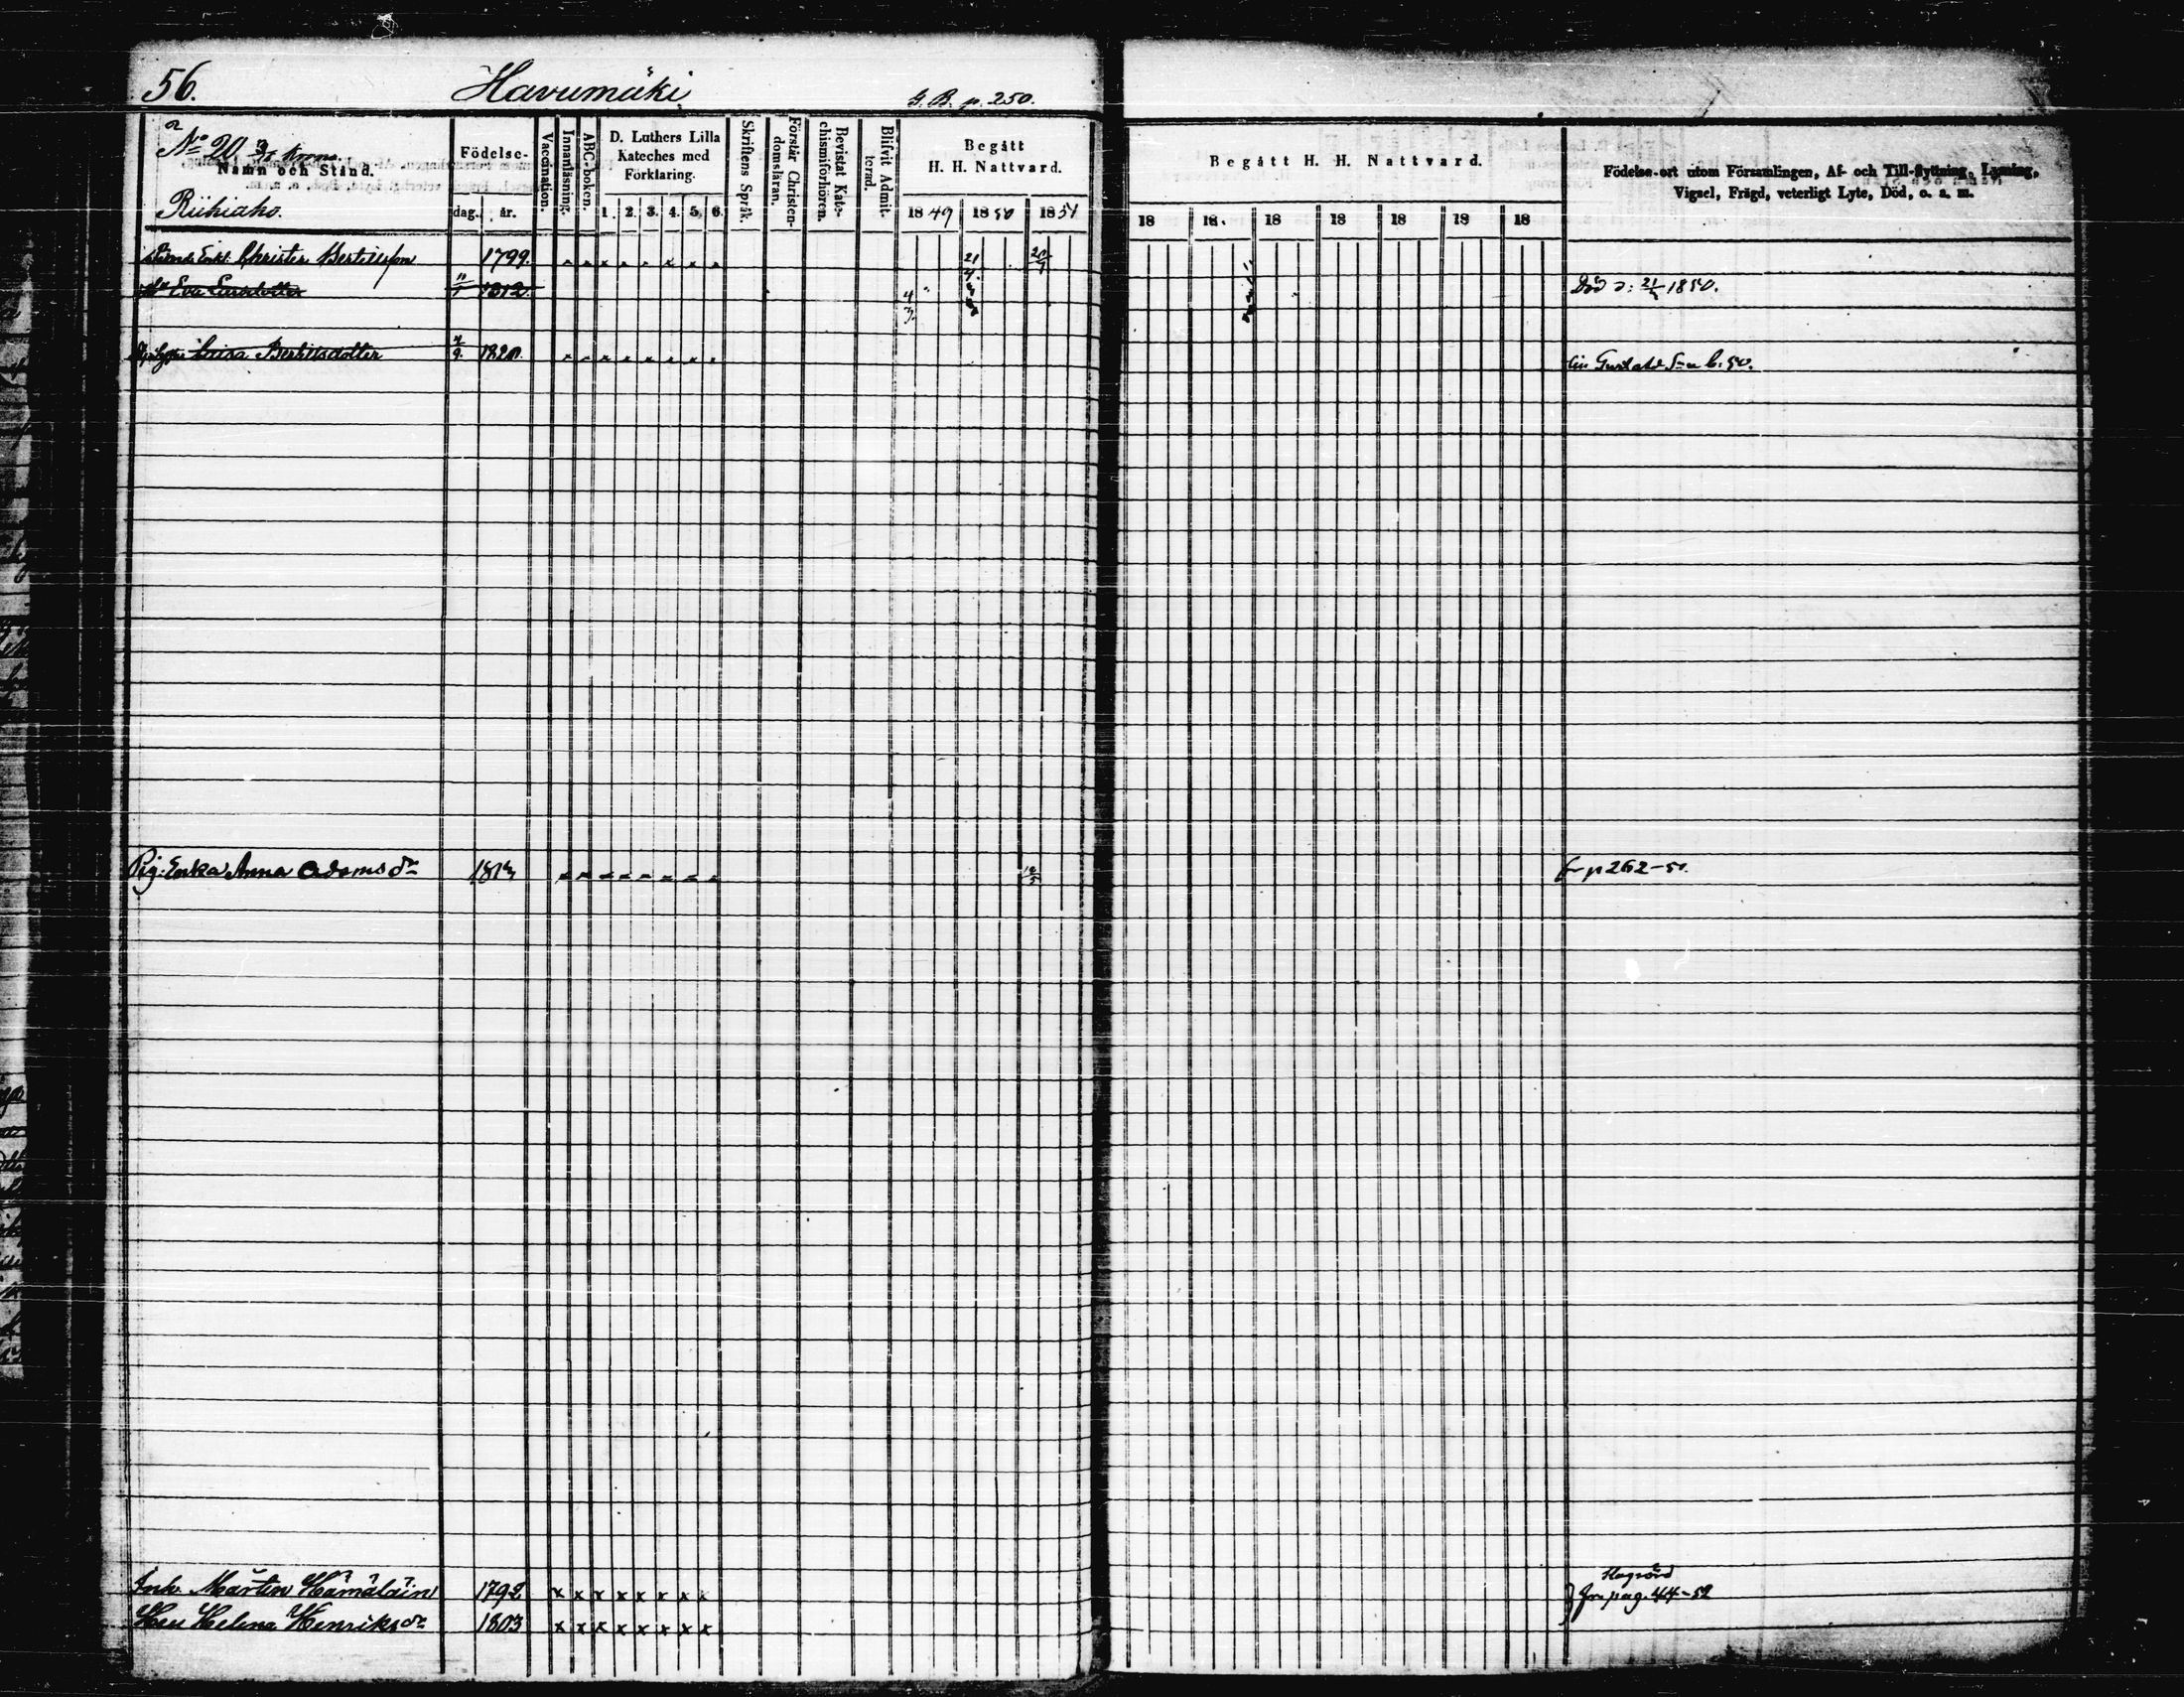 56. Havumäki G. B. p. 250.
No 20
Namn och Stånd.
Riihiaho.
Födelse-
dag. år.
Vaccination.
Innanläsning.
ABC-boken.
D. Luthers Lilla
Kateches med
Förklaring.
1. 2. 3. 4. 5. 6.
Skriftens Språk.
Förstår Christen-
domsläran.
Bevistat Kate-
chismiförhören.
Blifvit Admit-
terad.
Begått
H. H. Nattvard.
1849 1850 1851
Begått H. H. Nattvard.
18 18 18 18 18 18 18
Födelse-ort utom Församlingen, Af- och Till-flyttning, Lysning,
Vigsel, Frägd, veterligt Lyte, Död, o. s. m.
Christer Bertilsson 1799.
Eva Larsdotter 1812. Död d: 1850.
Caisa Bertilsdotter
Pig. Enka Anna Adamsdr fr p 262-51.
Inh. Mårten Hämäläin 1792 x x x x x x x x
Hu Helena Henriksdr 1803 x x x x x x x x
fr. pag. 44-52